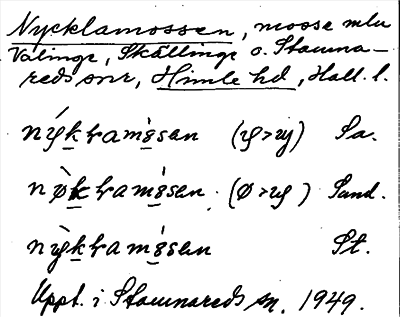 Nycklamossen, mosse mlu
Valinge, Skällinge o. Stamna-
reds snr, Himle hd, Hall. l.
nykframåsen (y>y) Sa.
nøkframåsen. (ø>y) Sand.
nykframåsen St.
Uppt. i Stamnareds sn. 1949.